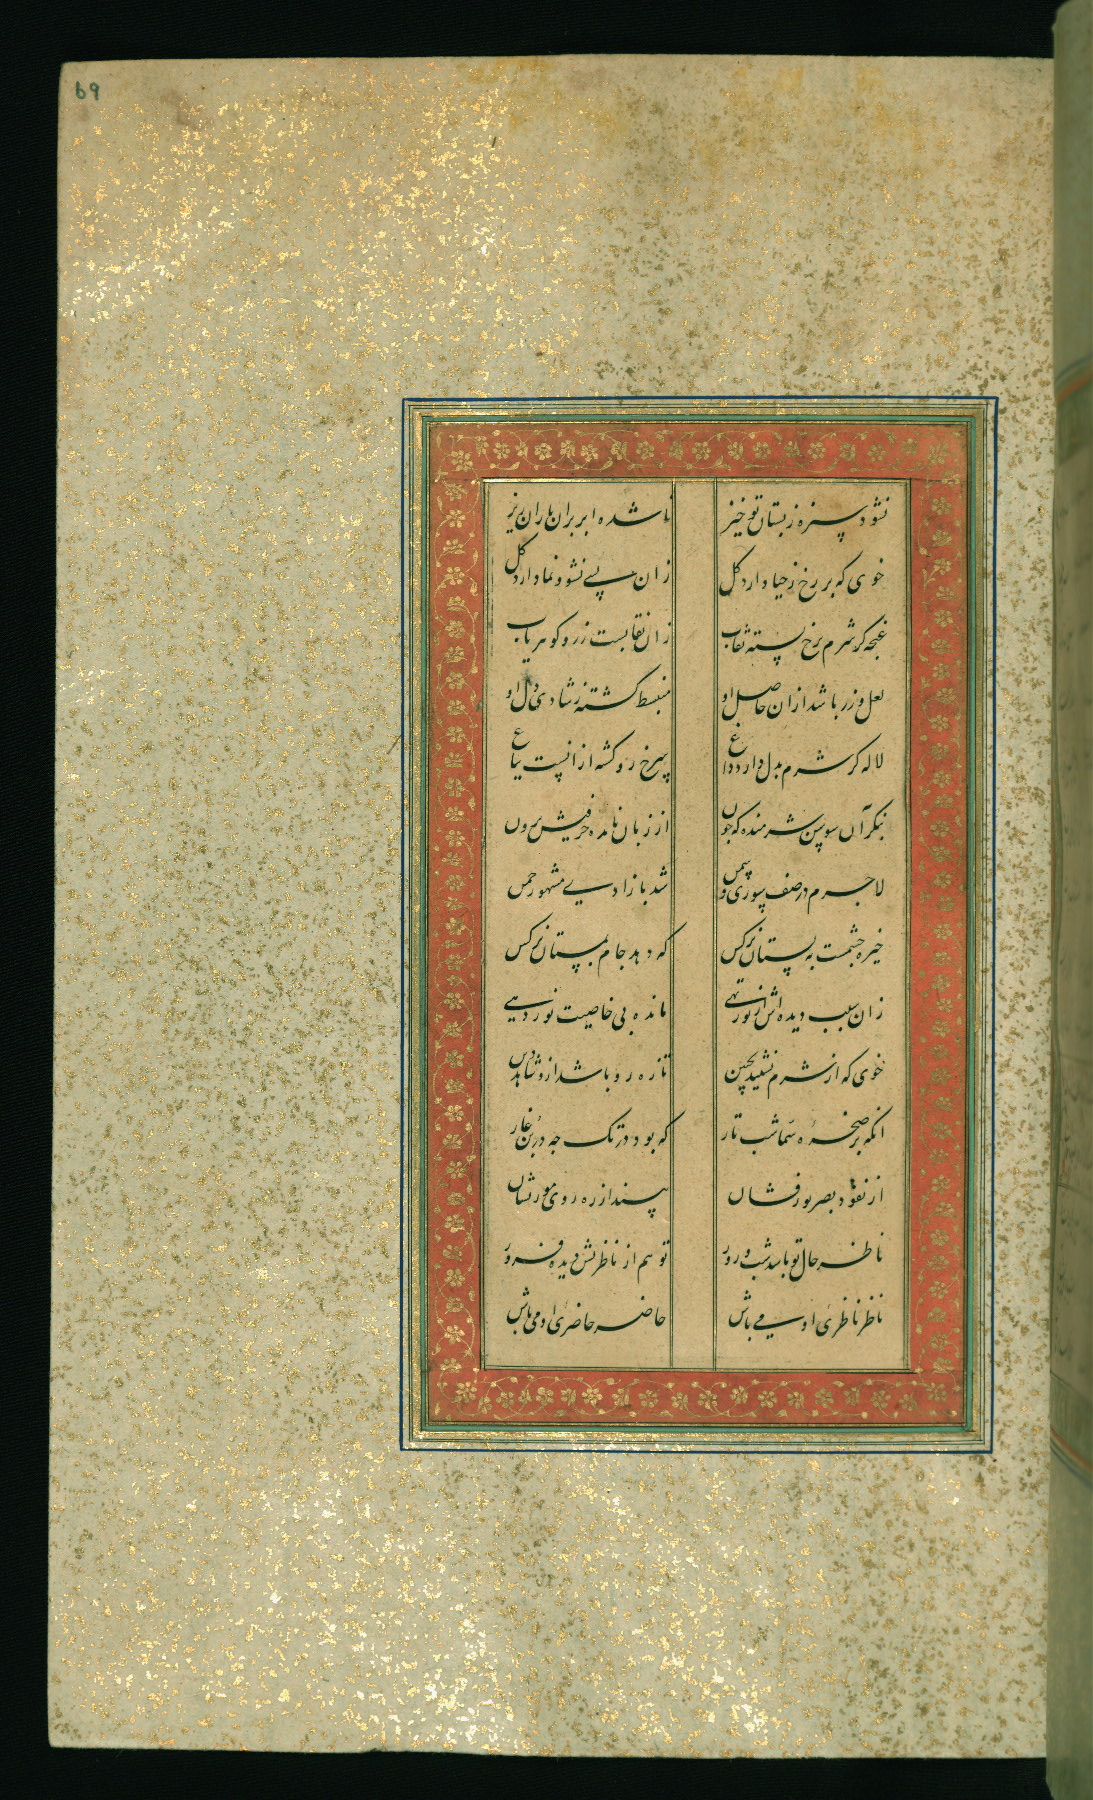 69
نشود سبزه ز بستان تو خیز
ناشده ابر بران باران ریز
خوی که بر رخ ز حیا دارد گل
زان پی نشو و نما دارد گل
غنچه کز شرم برخ بسته نقاب
زان نقابست زر و گوهر یاب
لعل و زر باشد ازان حاصل او
منبسط گشته ز شادی دل او
لاله کز شرم بدل دارد داغ
سرخ رو گشته ازانست بباغ
بنگر آن سوسن شرمنده که چون
از زبان نامده حرفیش برون
لاجرم در صف سوری و سمن
شد بازادیی مشهور چمن
خیره چشمست به بستان نرگس
که دهد جام بمستان نرگس
زان سبب دیده اش از نور تهی
مانده بی خاصیت نور دهی
خوی که از شرم نشیند بجبین
تازه رو باشد ازو شاهد دین
انکه بر صخره صما شب تار
که بود در تک چه در بن غار
از نقود بصر نور فشان
بیند از ره روی مور نشان
ناظر حال تو باشد شب و روز
تو هم از ناظریش دیده فروز
ناظر ناظری او می باش
حاضر حاضری او می باش